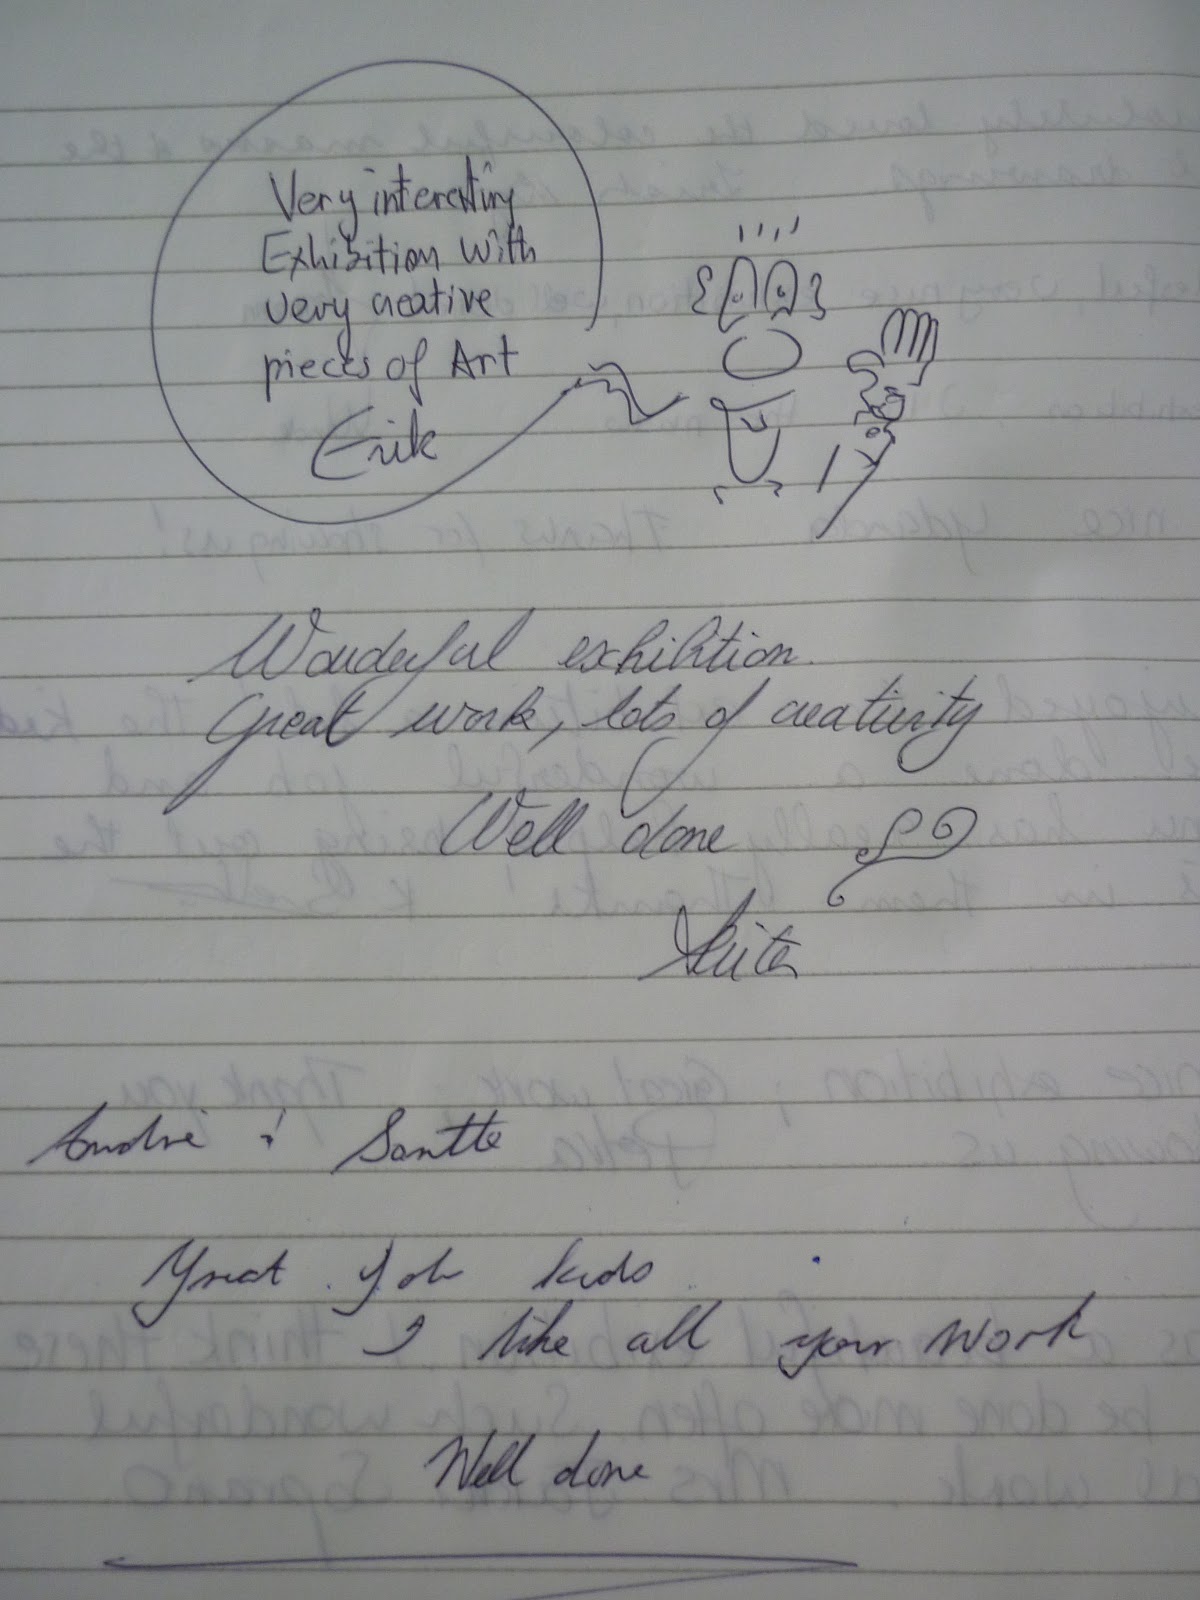 Very interesting
Exhibition with
very creative
pieces of Art
Erik
Wonderful exhibition.
Great work, lots of creativity
Well done
André &
Great Job kids
I like all your work
Well done